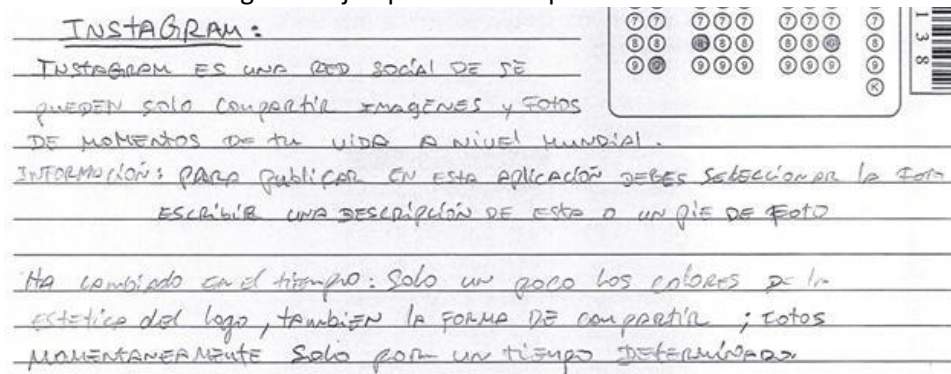 INSTAGRAM:
INSTAGRAM ES UNA RED SOCIAL DE SE
PUEDEN SOLO COMPARTIR IMAGENES Y FOTOS
DE MOMENTOS DE tu VIDA A NIVEL MUNDIAL.
INFORMACIÓN: PARA PUBLICAR EN ESTA APLICACIÓN DEBES SELECCIONAR la FOTO
ESCRIBIR UNA DESCRIPCIÓN DE ESTA O UN PIE DE FOTO
HA cambiado en el tiempo: Solo un poco los colores DE la
estetica del logo, también la FORMA DE compartir ; FOTOS
MOMENTANEAMENTE Solo por un tiempo DETERMINADO.
7 7 7 7 7 7 7
8 8 8 8 8 8 8 8
9 9 9 9 9 9 9
K
1 3 8